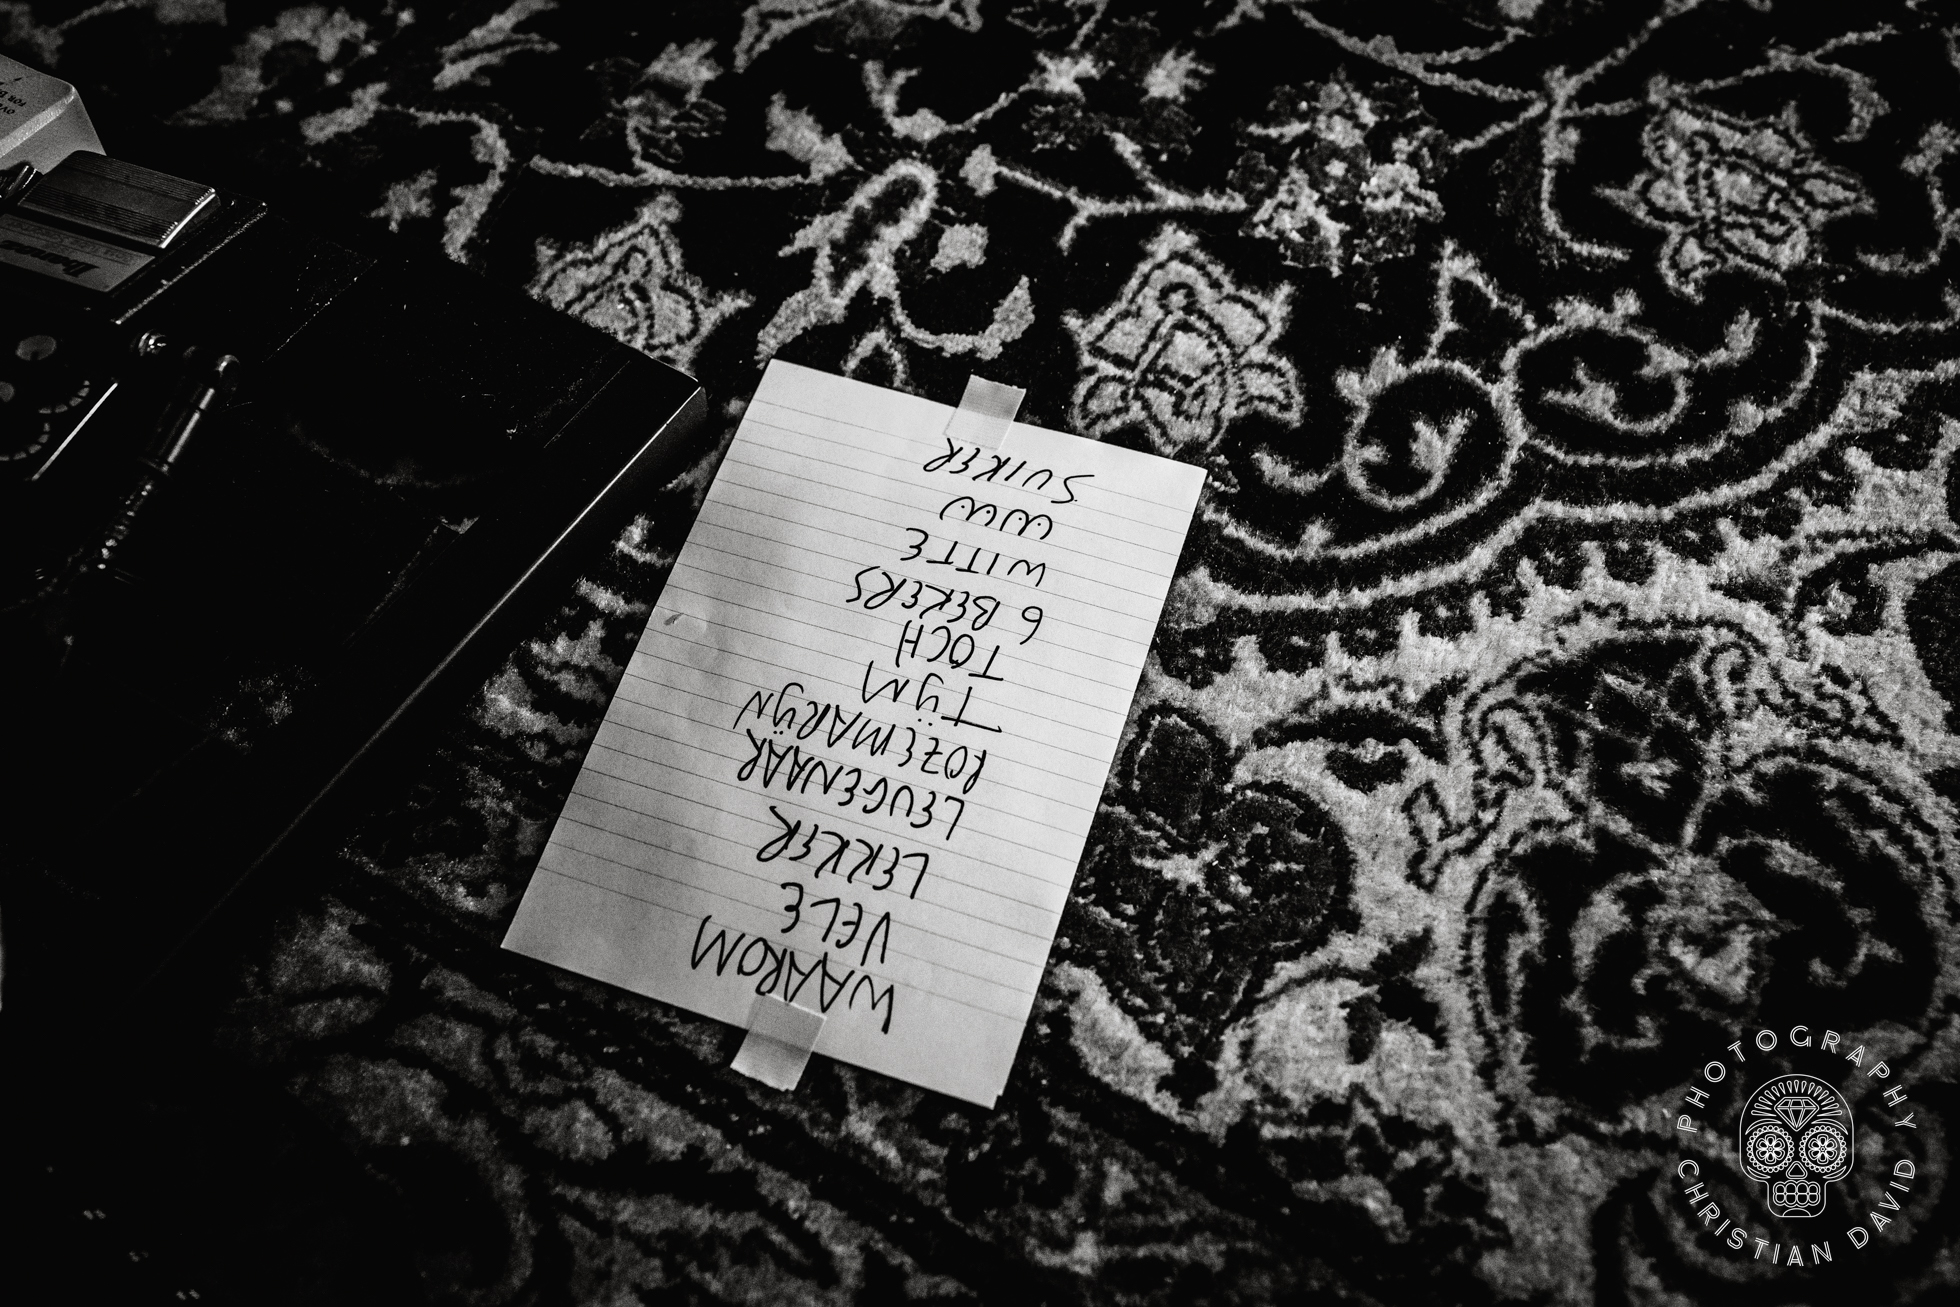 WAAROM
VELE
LEKKER
LEUGENÄAR
ROZEMARŸN
TŸM
TOCH
6 BEKERS
WITTE
SUIKER
Ibanez
PHOTOGRAPHY
CHRISTIAN DAVID